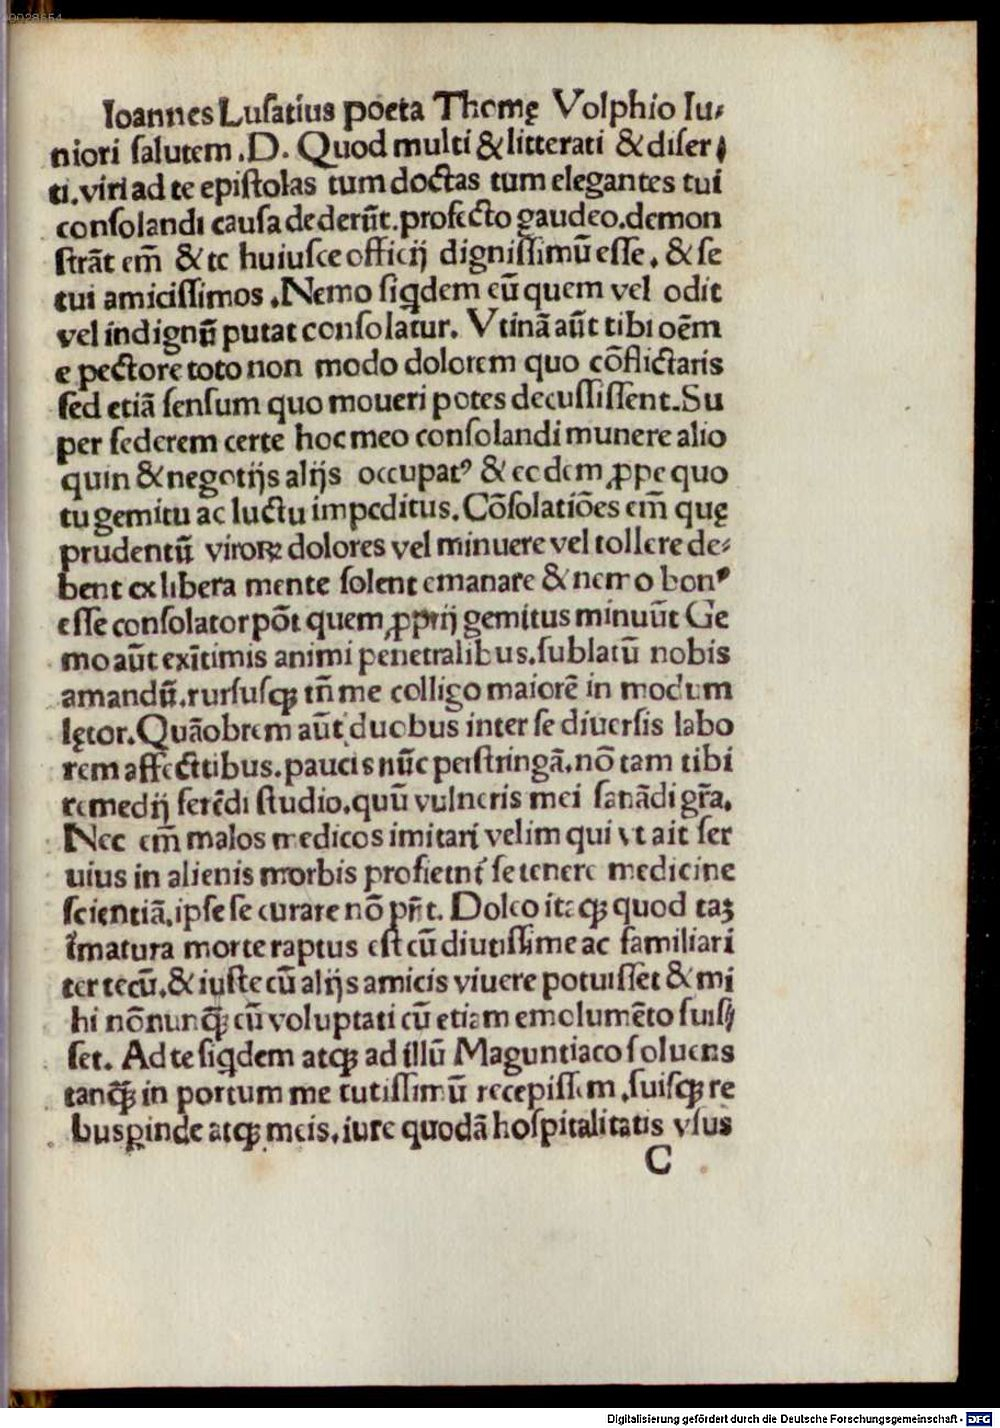 0028654
Ioannes Lusatius poeta Thomę Volphio Iu⸗
niori salutem .D. Quod multi & litterati & diser⸗
ti.viri ad te epistolas tum doctas tum elegantes tui
consolandi causa dederūt.profecto gaudeo.demon
strāt em̄ & te huiusce officij dignissimū esse. & se
tui amicissimos .Nemo siqdem eū quem vel odit
vel indignū putat consolatur. Vtinā aūt tibi oēm
e pectore toto non modo dolorem quo cōflictaris
sed etiā sensum quo moueri potes decussissent.Su
per sederem certe hoc meo consolandi munere alio
quin & negotijs alijs occupatꝰ & eodem ꝓppe quo
tu gemitu ac luctu impeditus. Cōsolatiōes em̄ quę
prudentū viroꝝ dolores vel minuere vel tollere de⸗
bent ex libera mente solent emanare & nemo bonꝰ
esse consolator pōt quem ꝓprij gemitus minuūt Ge
mo aūt exītimis animi penetralibus.sublatū nobis
amandū.rursusqꝫ tn̄ me colligo maiorē in modum
lętor.Quāobrem aūt duobus inter se diuersis labo
rem affecttibus.paucis nūc perstringā.nō tam tibi
remedij ferēdi studio.quū vulneris mei sanādi gr̄a.
Nec em̄ malos medicos imitari velim qui vt ait ser
uius in alienis morbis profitent᷑ se tenere medicine
scientiā.ipse se curare nō pn̄t. Doleo itaqꝫ quod taꝫ
īmatura morte raptus est cū diutissime ac familiari
ter tecū.& iuste cū alijs amicis viuere potuisset & mi
hi nōnunqꝫ̄ cū voluptati cū etiam emolumēto fuis⸗
set. Ad te siqdem atqꝫ ad illū Maguntiaco soluens
tanqꝫ̄ in portum me tutissimū recepissem .suisqꝫ re
bus ꝑinde atqꝫ meis.iure quodā hospitalitatis vsus
C
Digitalisierung gefördert durch die Deutsche Forschungsgemeinschaft - DFG